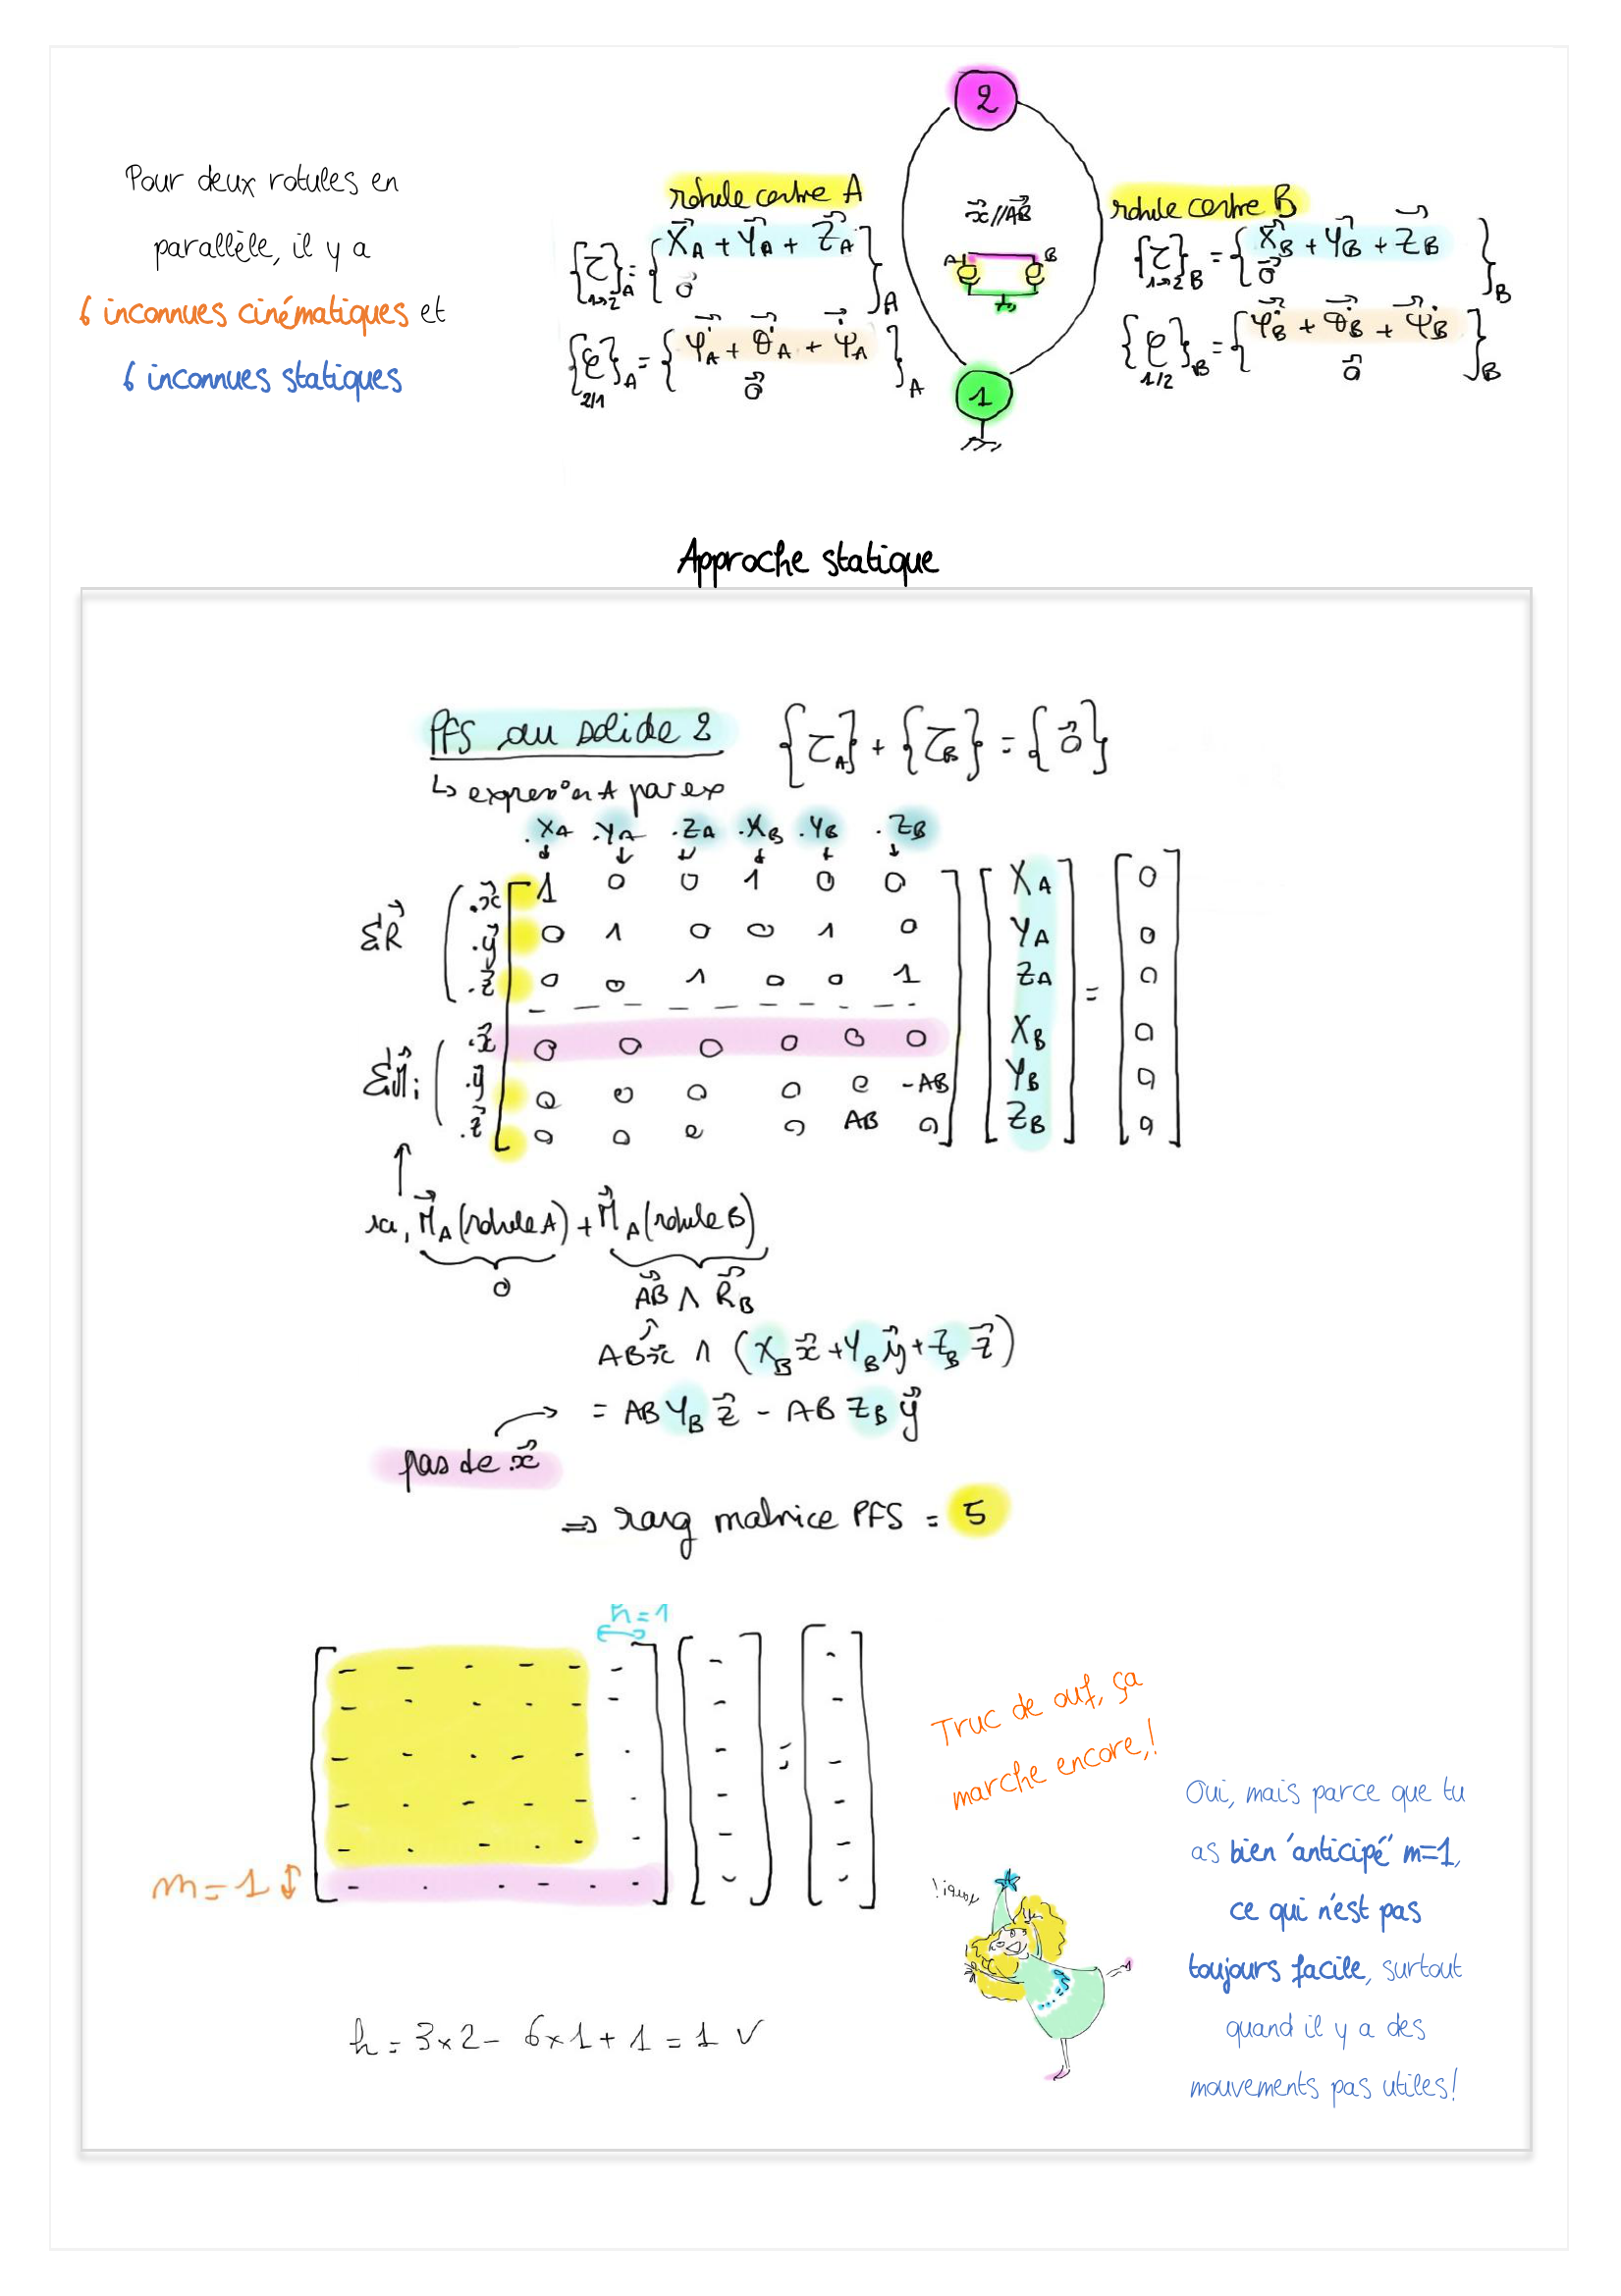 Pour deux rotules en
parallèle, il y a
6 inconnues cinématiques et
6 inconnues statiques
2
rotule centre A
{τ}A 1→2 = { X⃗A + Y⃗A + Z⃗A
0⃗ }A
{𝒞}A 2/1 = { φ̇⃗A + θ̇⃗A + ψ̇⃗A
0⃗ }A
x⃗ // A⃗B
A B
1
rotule centre B
{τ}B 1→2 = { X⃗B + Y⃗B + Z⃗B
0⃗ }B
{𝒞}B 1/2 = { φ̇⃗B + θ̇⃗B + ψ̇⃗B
0⃗ }B
Approche statique
PFS au solide 2 {τA} + {τB} = {0⃗}
↳ expres° en A par ex
.XA .YA .ZA .XB .YB .ZB
ΣR⃗ ( .x⃗ [ 1 0 0 1 0 0 ] [ XA ] = [ 0 ]
.y⃗ 0 1 0 0 1 0 YA 0
.z⃗ 0 0 1 0 0 1 ZA 0
ΣM⃗i ( .x⃗ 0 0 0 0 0 0 XB 0
.y⃗ 0 0 0 0 0 -AB YB 0
.z⃗ 0 0 0 0 AB 0 ZB 0
ici, M⃗A (rotule A) + M⃗A (rotule B)
0
A⃗B ∧ R⃗B
AB x⃗ ∧ (XB x⃗ + YB y⃗ + ZB z⃗)
= AB YB z⃗ - AB ZB y⃗
pas de x⃗
⇒ rang matrice PFS = 5
h=1
m=1
h = 3×2 - 6×1 + 1 = 1 ✓
Truc de ouf, ça
marche encore,!
Oui, mais parce que tu
as bien 'anticipé' m=1,
ce qui n'est pas
toujours facile, surtout
quand il y a des
mouvements pas utiles!